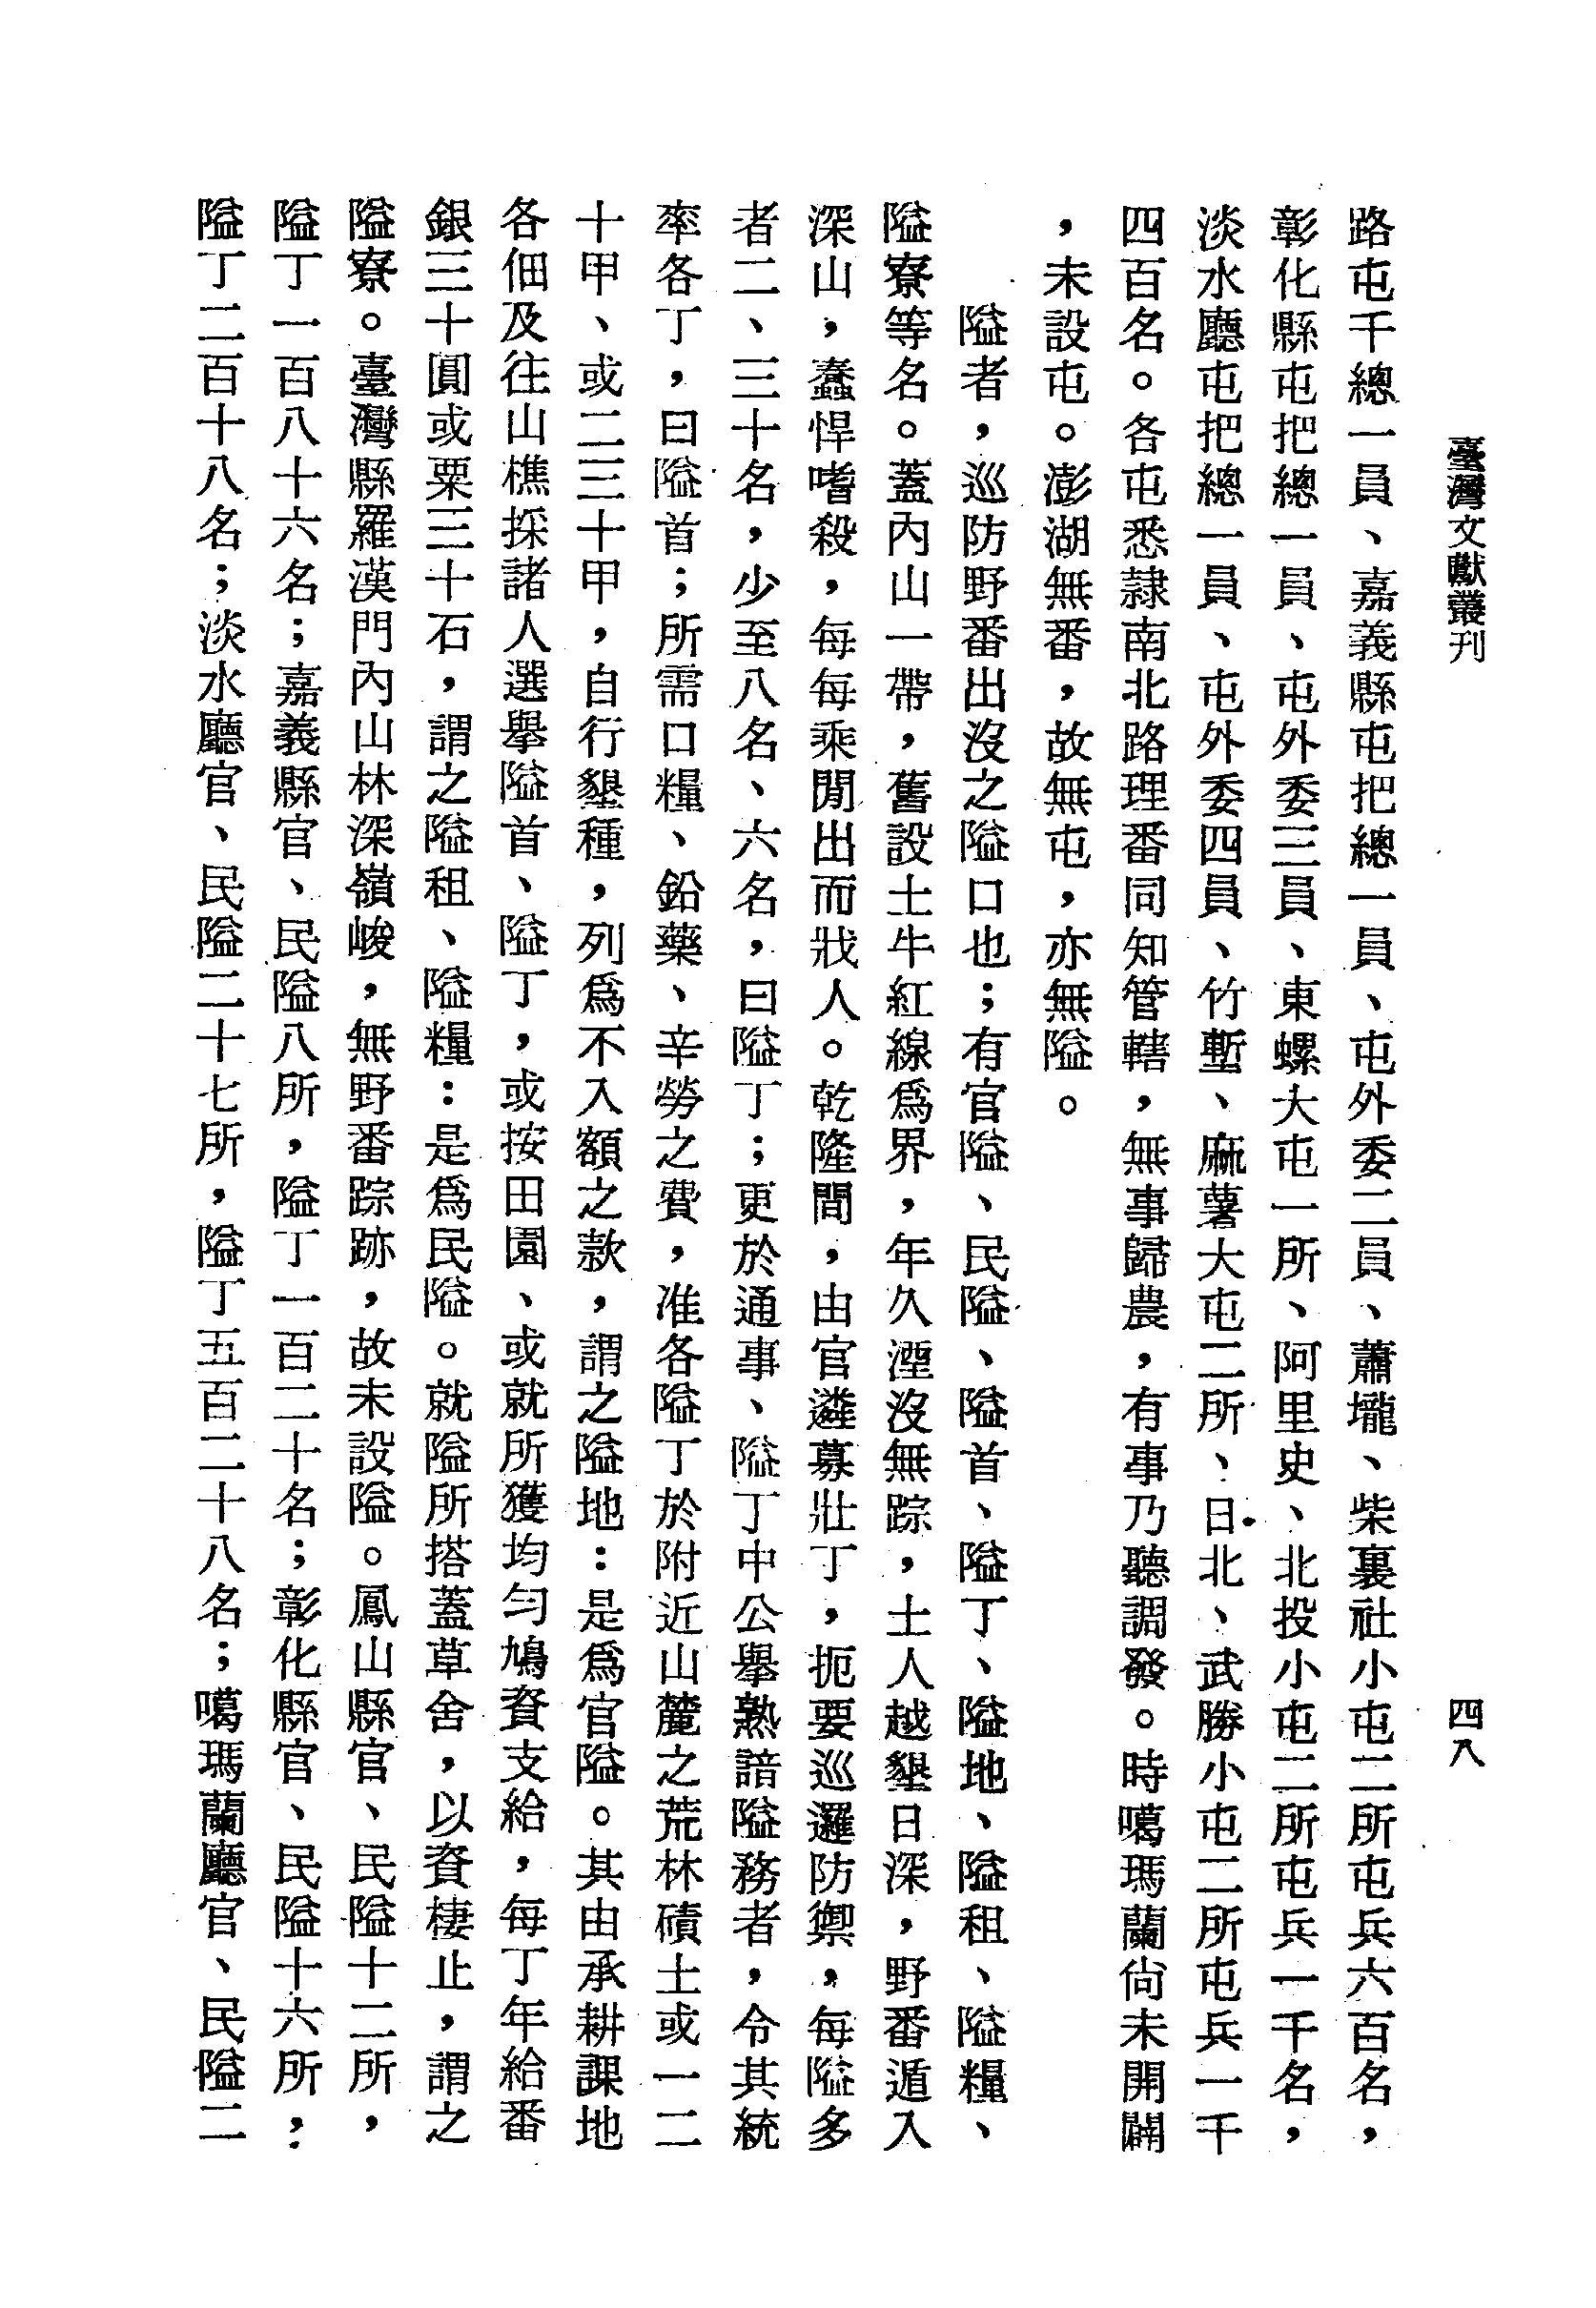 臺灣文獻叢刊
四八
路屯千總一員、嘉義縣屯把總一員、屯外委二員、蕭壠、柴裏社小屯二所屯兵六百名，
彰化縣屯把總一員、屯外委三員、東螺大屯一所、阿里史、北投小屯二所屯兵一千名，
淡水廳屯把總一員、屯外委四員、竹塹、麻薯大屯二所、日北、武勝小屯二所屯兵一千
四百名。各屯悉隸南北路理番同知管轄，無事歸農，有事乃聽調發。時噶瑪蘭尙未開闢
，未設屯。澎湖無番，故無屯，亦無隘。
隘者，巡防野番出沒之隘口也；有官隘、民隘、隘首、隘丁、隘地、隘租、隘糧、
隘寮等名。蓋內山一帶，舊設土牛紅線爲界，年久湮沒無踪，土人越墾日深，野番遁入
深山，蠢悍嗜殺，每每乘閒出而戕人。乾隆間，由官遴募壯丁，扼要巡邏防禦，每隘多
者二、三十名，少至八名、六名，曰隘丁；更於通事、隘丁中公舉熟諳隘務者，令其統
率各丁，曰隘首；所需口糧、鉛藥、辛勞之費，准各隘丁於附近山麓之荒林磧土或一二
十甲、或二三十甲，自行墾種，列爲不入額之款，謂之隘地：是爲官隘。其由承耕課地
各佃及往山樵採諸人選舉隘首、隘丁，或按田園、或就所獲均勻鳩資支給，每丁年給番
銀三十圓或粟三十石，謂之隘租、隘糧：是爲民隘。就隘所搭蓋草舍，以資棲止，謂之
隘寮。臺灣縣羅漢門內山林深嶺峻，無野番踪跡，故未設隘。鳳山縣官、民隘十二所，
隘丁一百八十六名；嘉義縣官、民隘八所，隘丁一百二十名；彰化縣官、民隘十六所，
隘丁二百十八名；淡水廳官、民隘二十七所，隘丁五百二十八名；噶瑪蘭廳官、民隘二